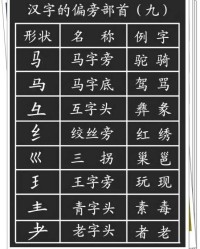 汉字的偏旁部首（九）
形状 名称 例字
马 马字旁 驼骑
马 马字底 驾骂
彑 互字头 彝象
纟 绞丝旁 红绣
巛 三拐 巢邕
王 王字旁 玩现
龶 青字头 素毒
耂 老字头 者老